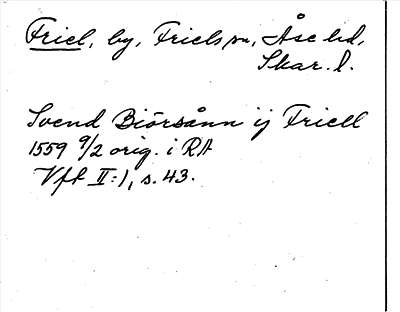 Friel, by, Friels sn, Åse hd,
Skar. l.
Svend Biörsånn ij Friell
1559 9/2 orig. i RA
Vft II:1, s. 43.